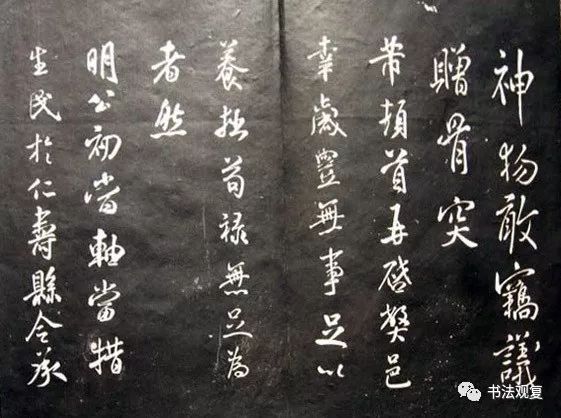 神物敢竊議
贈骨突
芾頓首再啓弊邑
幸歲豐無事足以
養拙苟祿無足為
者然
明公初當軸當措
生民於仁壽縣令承
书法观复